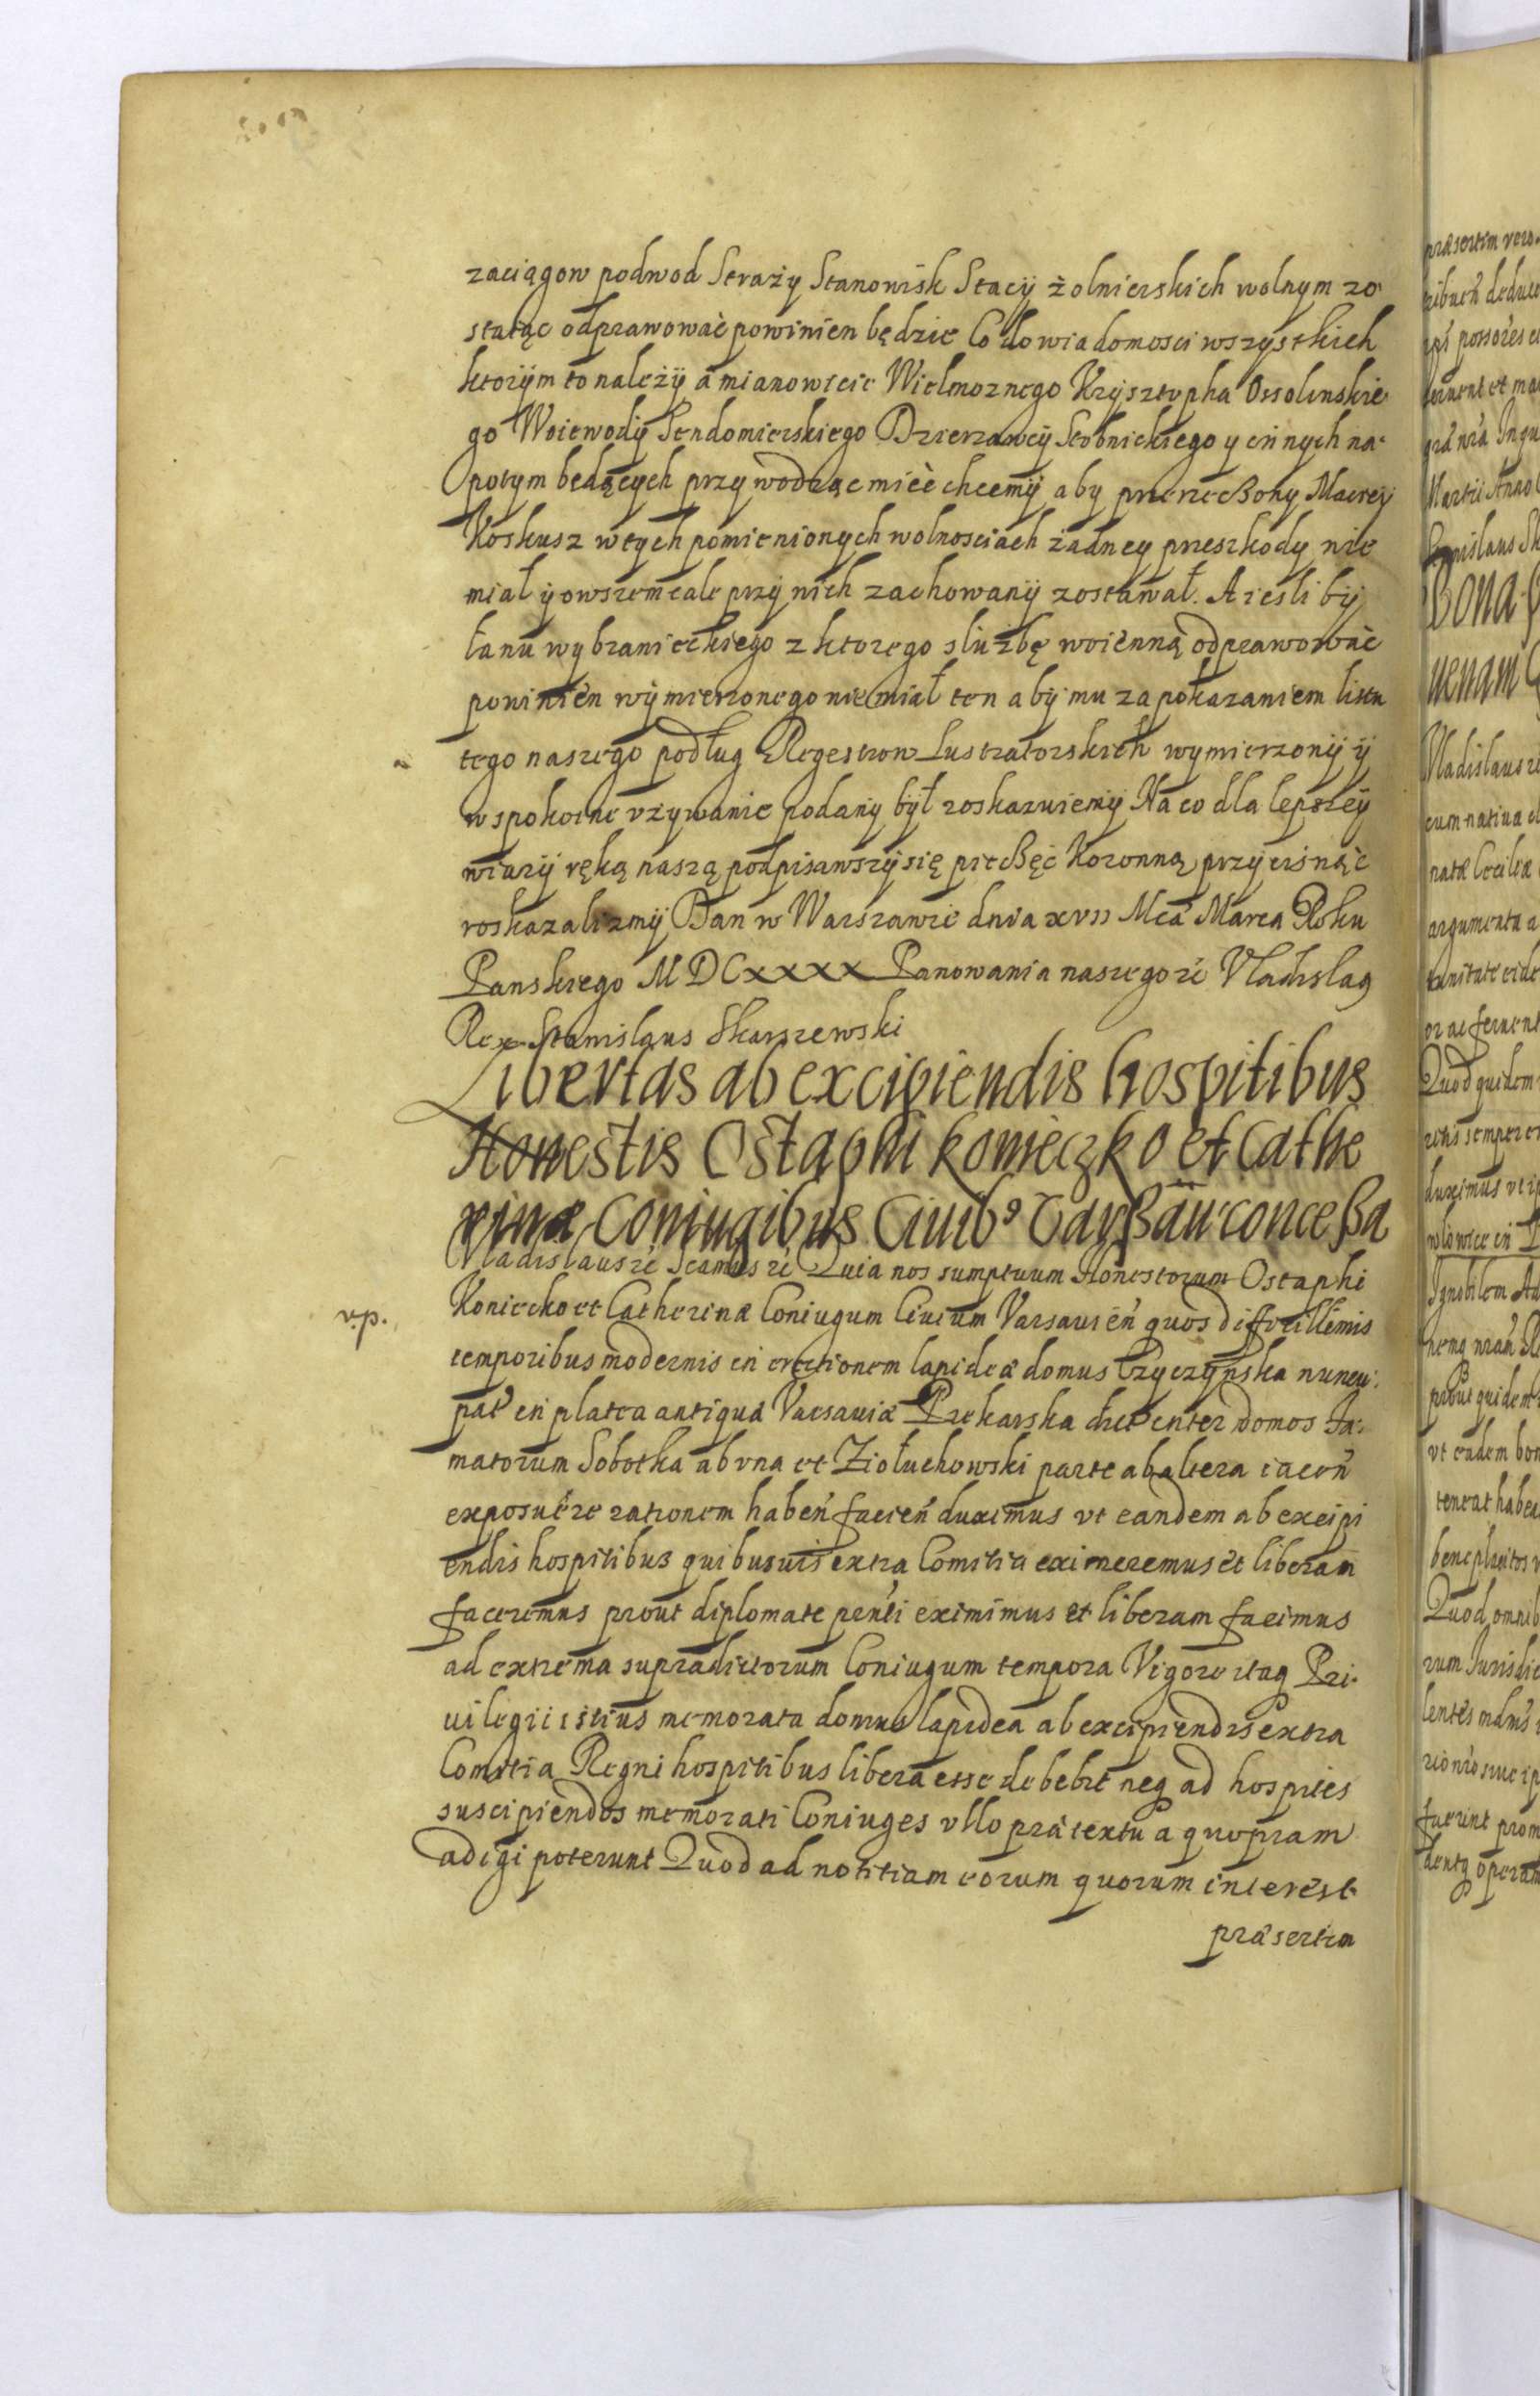 zaciągow podwod Straży Stanowisk Stacÿ żolnierskich wolnym zo
staiąc odprawować powinien będzie Co do wiadomosci wszystkich
ktorÿm to należÿ a mianowicie Wielmoznego Krzysztopha Ossolinskie
go Woiewodÿ Sendomierskiego Dzierzawcÿ Stobnickiego y innych na
potym będących przywodząc mieć chcemÿ aby przerzeczony Macieÿ
Koskusz w tych pomienionych wolnosciach żadney przeszkody nie
miał ÿ owszem cale przÿ nich zachowanÿ zostawał. A iesli bÿ
łanu wybranieckiego z ktorego służbę woienną odprawować
powinien wÿmierzonego nie miał ten abÿ mu za pokazaniem listu
tego naszego podług Regestrow Lustratorskich wymierzonÿ ÿ
w spokoine vzywanie podany był roskazuiemÿ Na co dla lepszeÿ
wiarÿ ręką naszą podpisawszÿ się pieczęć Koronną przycisnąć
roskazalizmÿ Dan w Warszawie dnia xvii Mca Marca Roku
Panskiego MDCxxxx Panowania naszego zc Vladislaus
Rex Stanislaus Skarszewski
Libertas ab excipiendis hospitibus
Honestis Ostaphi Konieczko et Cathe
rinæ Coniugibus Ciuib9 Varßauń conceßa
Vladislaus zc Scamus zc Quia nos sumptuum Honestorum Ostaphi
v.p. Koniecko et Catherinæ Coniugum Ciuium Varsauień quos difficillimis
temporibus modernis in erectionem lapideæ domus Czyczynska nuncu
pat in platea antiqua Varsauiæ Piekarska dict inter domos Fa
matorum Sobotka ab vna et Ziołuchowski parte ab altera iaceń
exposuere rationem habeń facień duximus vt eandem ab excipi
endis hospitibus quibusuis extra Comitia eximeremus et liberam
faceremus prout diplomate penti eximimus et liberam facimus
ad extrema supradictorum Coniugum tempora Vigore itaq Pri
uilegii istius memorata domus lapidea ab excipiendis extra
Comitia Regni hospitibus libera esse debebit neq ad hospites
suscipiendos memorati Coniuges vllo prætextu a quopiam
adigi poterunt Quod ad notitiam eorum quorum interest
præsertim